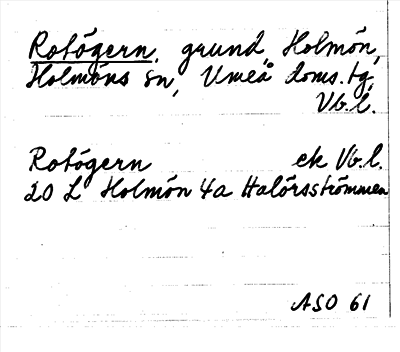 Rotögern, grund, Holmön,
Holmöns sn, Umeå doms. tg,
Vb. l.
Rotögern ek Vb. l.
20 L Holmön 4a Halörsströmmen
ASO 61